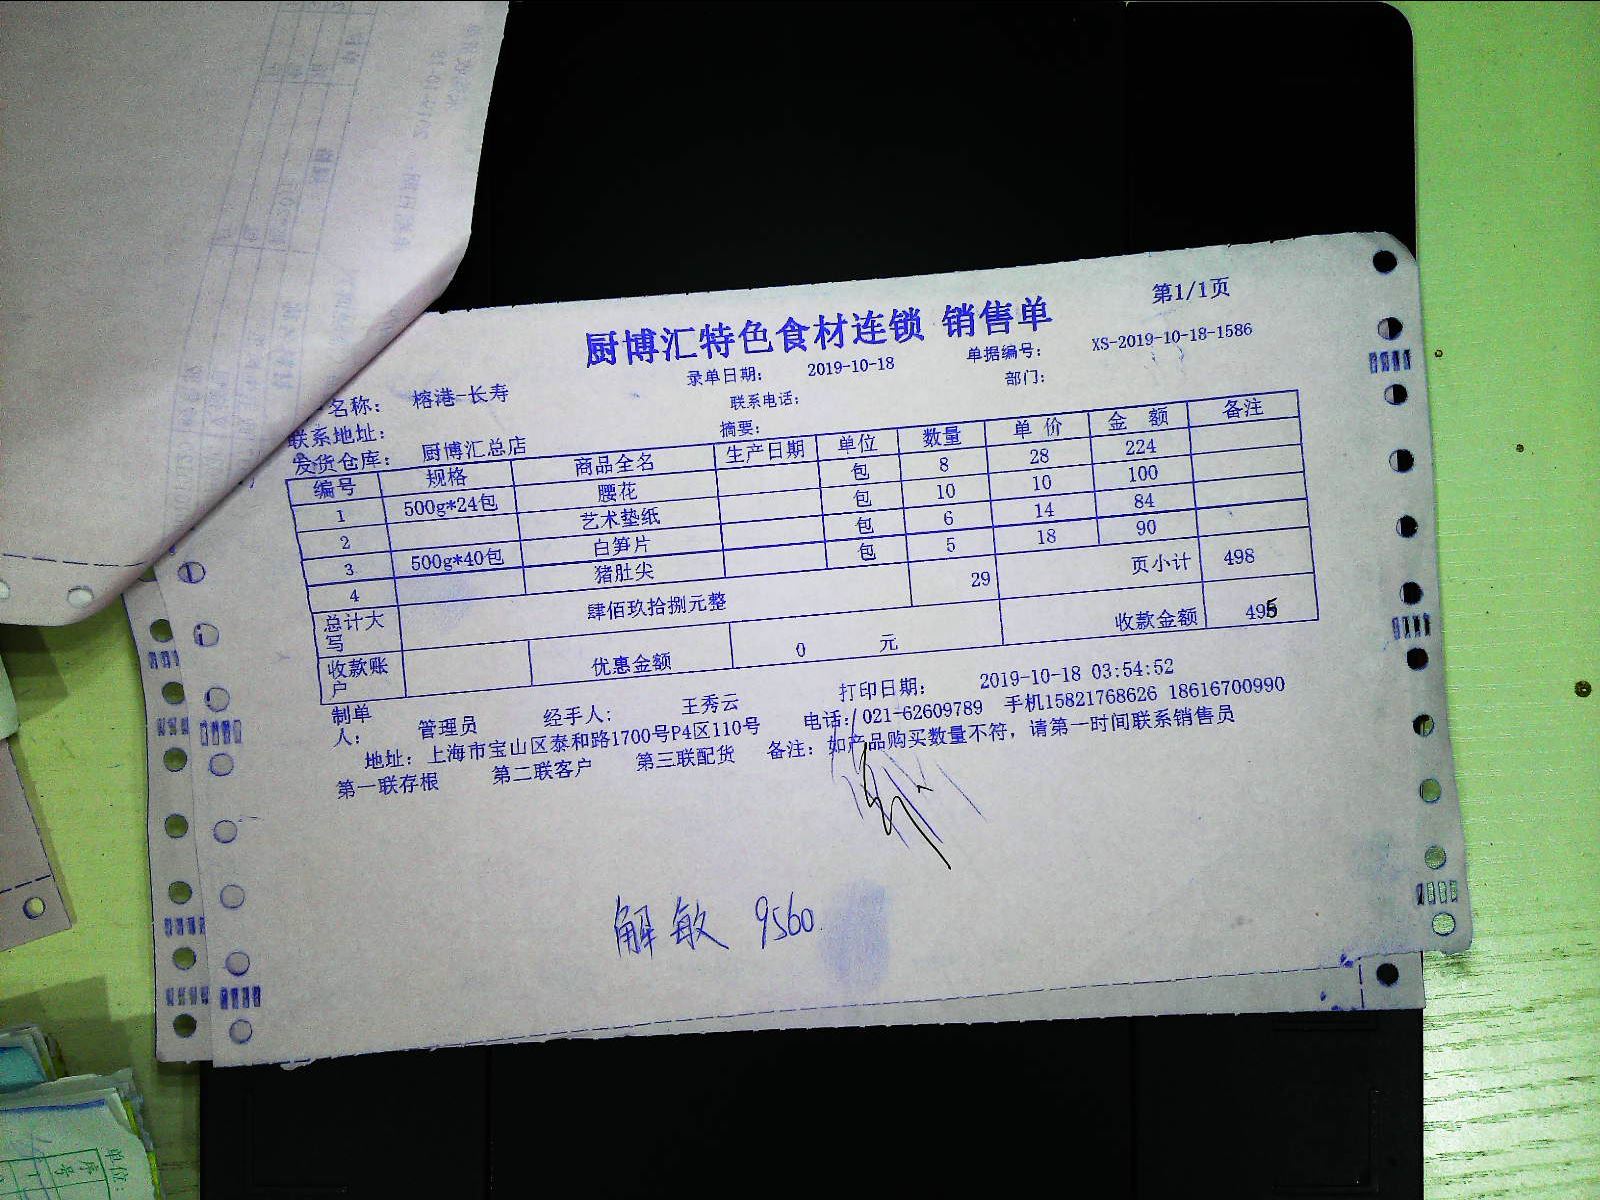 第1/1页
厨博汇特色食材连锁 销售单
录单日期： 2019-10-18 单据编号： XS-2019-10-18-1586
名称： 榕港-长寿 联系电话： 部门：
联系地址： 摘要：
发货仓库： 厨博汇总店
编号 规格 商品全名 生产日期 单位 数量 单 价 金 额 备注
1 500g*24包 腰花 包 8 28 224
2 艺术垫纸 包 10 10 100
3 500g*40包 白笋片 包 6 14 84
4 猪肚尖 包 5 18 90
总计大写 肆佰玖拾捌元整 29 页小计 498
收款账户 优惠金额 0 元 收款金额 495
制单人： 管理员 经手人： 王秀云 打印日期： 2019-10-18 03:54:52
地址：上海市宝山区泰和路1700号P4区110号 电话：021-62609789 手机15821768626 18616700990
第一联存根 第二联客户 第三联配货 备注：如产品购买数量不符，请第一时间联系销售员
解敏 9560
单位：
序号